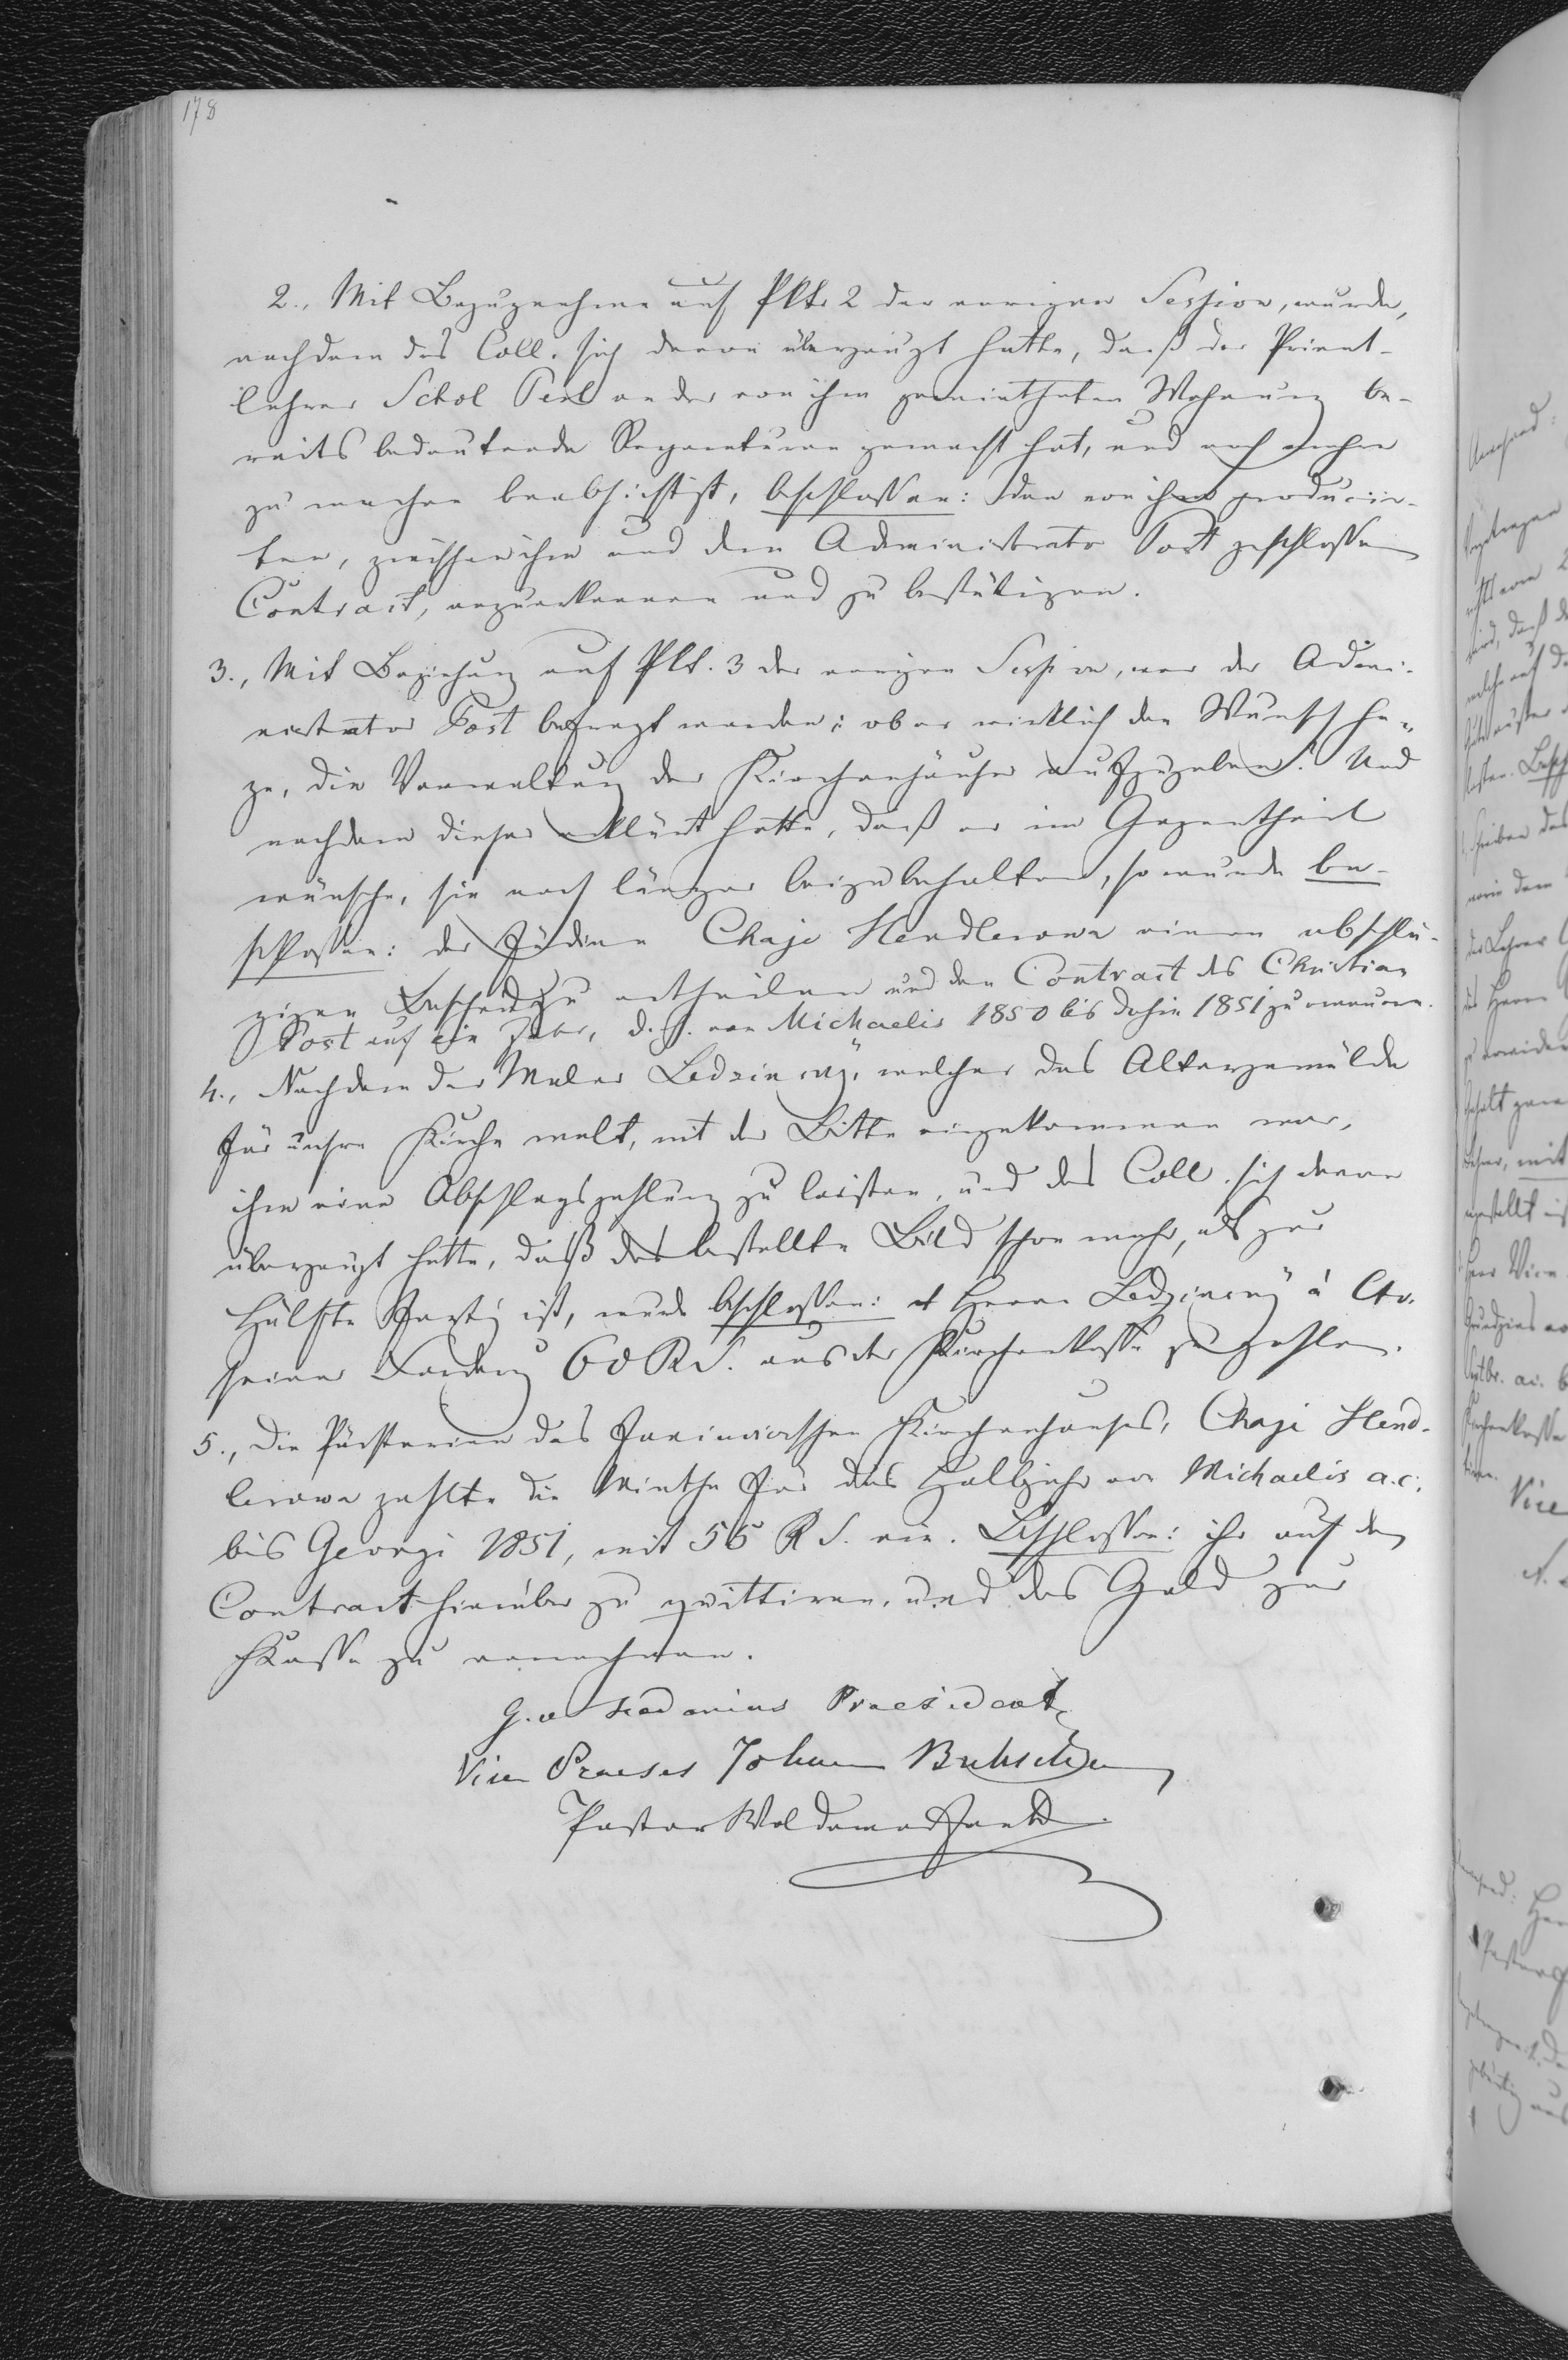 178
2., Mit Bezugnahme auf Pkt. 2 der vorigen Session, wurde,
nachdem das Coll. sich davon überzeugt hatte, daß der Privat-
lehrer Schol Perl an der von ihm gemietheten Wohnung be-
reits bedeutende Reparaturen gemacht hat, und noch mehre
zu machen beabsichtigt, beschlossen: den von ihm producir-
ten, zwischen ihm und dem Administrator Post geschlossenen
Contract, anzuerkennen und zu bestätigen.
3., Mit Beziehung auf Pkt. 3 der vorigen Session, war der Admi-
nistrator Post befragt worden: ob er wirklich den Wunsch he-
ge, die Verwaltung der Kirchenhäuser aufzugeben? Und
nachdem dieser erklärt hatte, daß er im Gegentheil
wünsche, sie noch länger beizubehalten, so wurde be-
schlossen: der Jüdinn Chaje Hendlerowa einen abschlä-
gigen Bescheid zu ertheilen und den Contract des Christian
Post auf ein Jahr, d. h. von Michaelis 1850 bis dahin 1851 zu erneuern.
4., Nachdem der Maler, welcher das Altargemälde
für unsre Kirche malt, mit der Bitte eingekommen war,
ihm eine Abschlagszahlung zu leisten, und das Coll. sich davon
überzeugt hatte, daß das bestellte Bild schon mehr, als zur
Hälfte fertig ist, wurde beschlossen: Herrn à Cto.
seiner Forderung 60 RS. aus der Kirchenkasse zu zahlen.
5., Die Pächterinn des Kirchenhauses, Chaje Hend-
lerowa zahlte die Miethe für das Halbjahr von Michaelis a.c.
bis Georgi 1851, mit 55 RS. ein. Beschlossen: ihr auf dem
Contract hierüber zu quittiren, und das Geld zur
Kasse zu vereinnahmen.
G. v. Praesident
Vice Praeses Johann
Pastor Woldemar